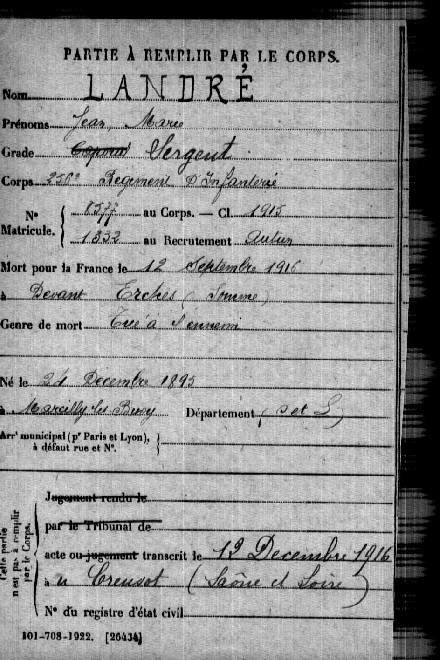 PARTIE À REMPLIR PAR LE CORPS.
Nom LANDRÉ
Prénoms Jean, Marie
Grade Caporal Sergent
Corps 256e Régiment d'Infanterie
No
Matricule. { 8577 au Corps. — Cl. 1915
1332 au Recrutement Autun
Mort pour la France le 12 Septembre 1916
à Devant Erches (Somme)
Genre de mort Tué à l'ennemi
Né le Décembre 1895
à Marcilly les Buxy Département (S et L)
Arrt municipal (pr Paris et Lyon), }
à défaut rue et No.
Cette partie
n'est pas à remplir
par le Corps.
Jugement rendu le
par le Tribunal de
acte ou jugement transcrit le 13 Décembre 1916
à u Creusot (Saône et Loire)
No du registre d'état civil
101-708-1922. [26434]